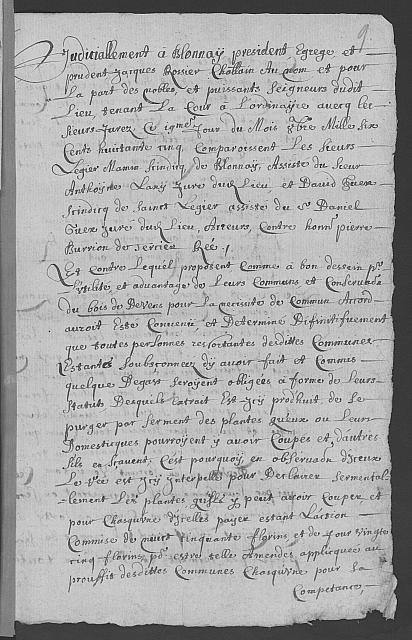 9.
Judiciallement à Blonnay president Egrege et
prudent Jacques Rossier Chastlain Au nom et pour
La part des nobles, et puissants Seigneurs dudit
Lieu, tenant La Cour à L'ordinaire avecq les
Sieurs Jurez, Ce jour du Mois Mille Six
Cents huitante cinq, Comparoissent Les Sieurs
Legier Mamin Scindicq de Blonnay, Assiste du Sieur
Anthoyne Juré dud. Lieu, et David
Scindicq de Sainct Legier assiste du Sr. Daniel
Juré dud. Lieu, Acteurs, Contre honn. pierre
Burrion de Rée.
Et Contre Lequel proposent Comme à bon dessein pr.
L'utilité et advantage de Leurs Communs et Conservaõn
du bois de Devens pour La necissite du Commun Accord
auroit Este Convenu et Determiné Difinitifvement
que toutes personnes ressortantes desdites Communes
Estantes Soubsconnees d'y avoir fait et Commis
quelque Degast Seroyent obligees à forme de Leurs
Statuts Desquels Extrait Est Icy produit de Se
purger par Serment des plantes qu'eux ou Leurs
Domestiques pourroyent y avoir Coupés et, d'autres
fils en Scavent, C'est pourquoy en observaõn d'Iceux
Le Rée est Icy Interpellé pour Declairer Sermental-
-lement Les plantes qu'il y peut avoir Couper et
pour Chasqu'une d'Icelles payer estant L'action
Commise de nuict Cinquante florins et de Jour Vingte
cinq florins, pd. estre telle Amendes appliquée au
prouffit desdittes Communes Chasqu'une pour Sa
Competance,